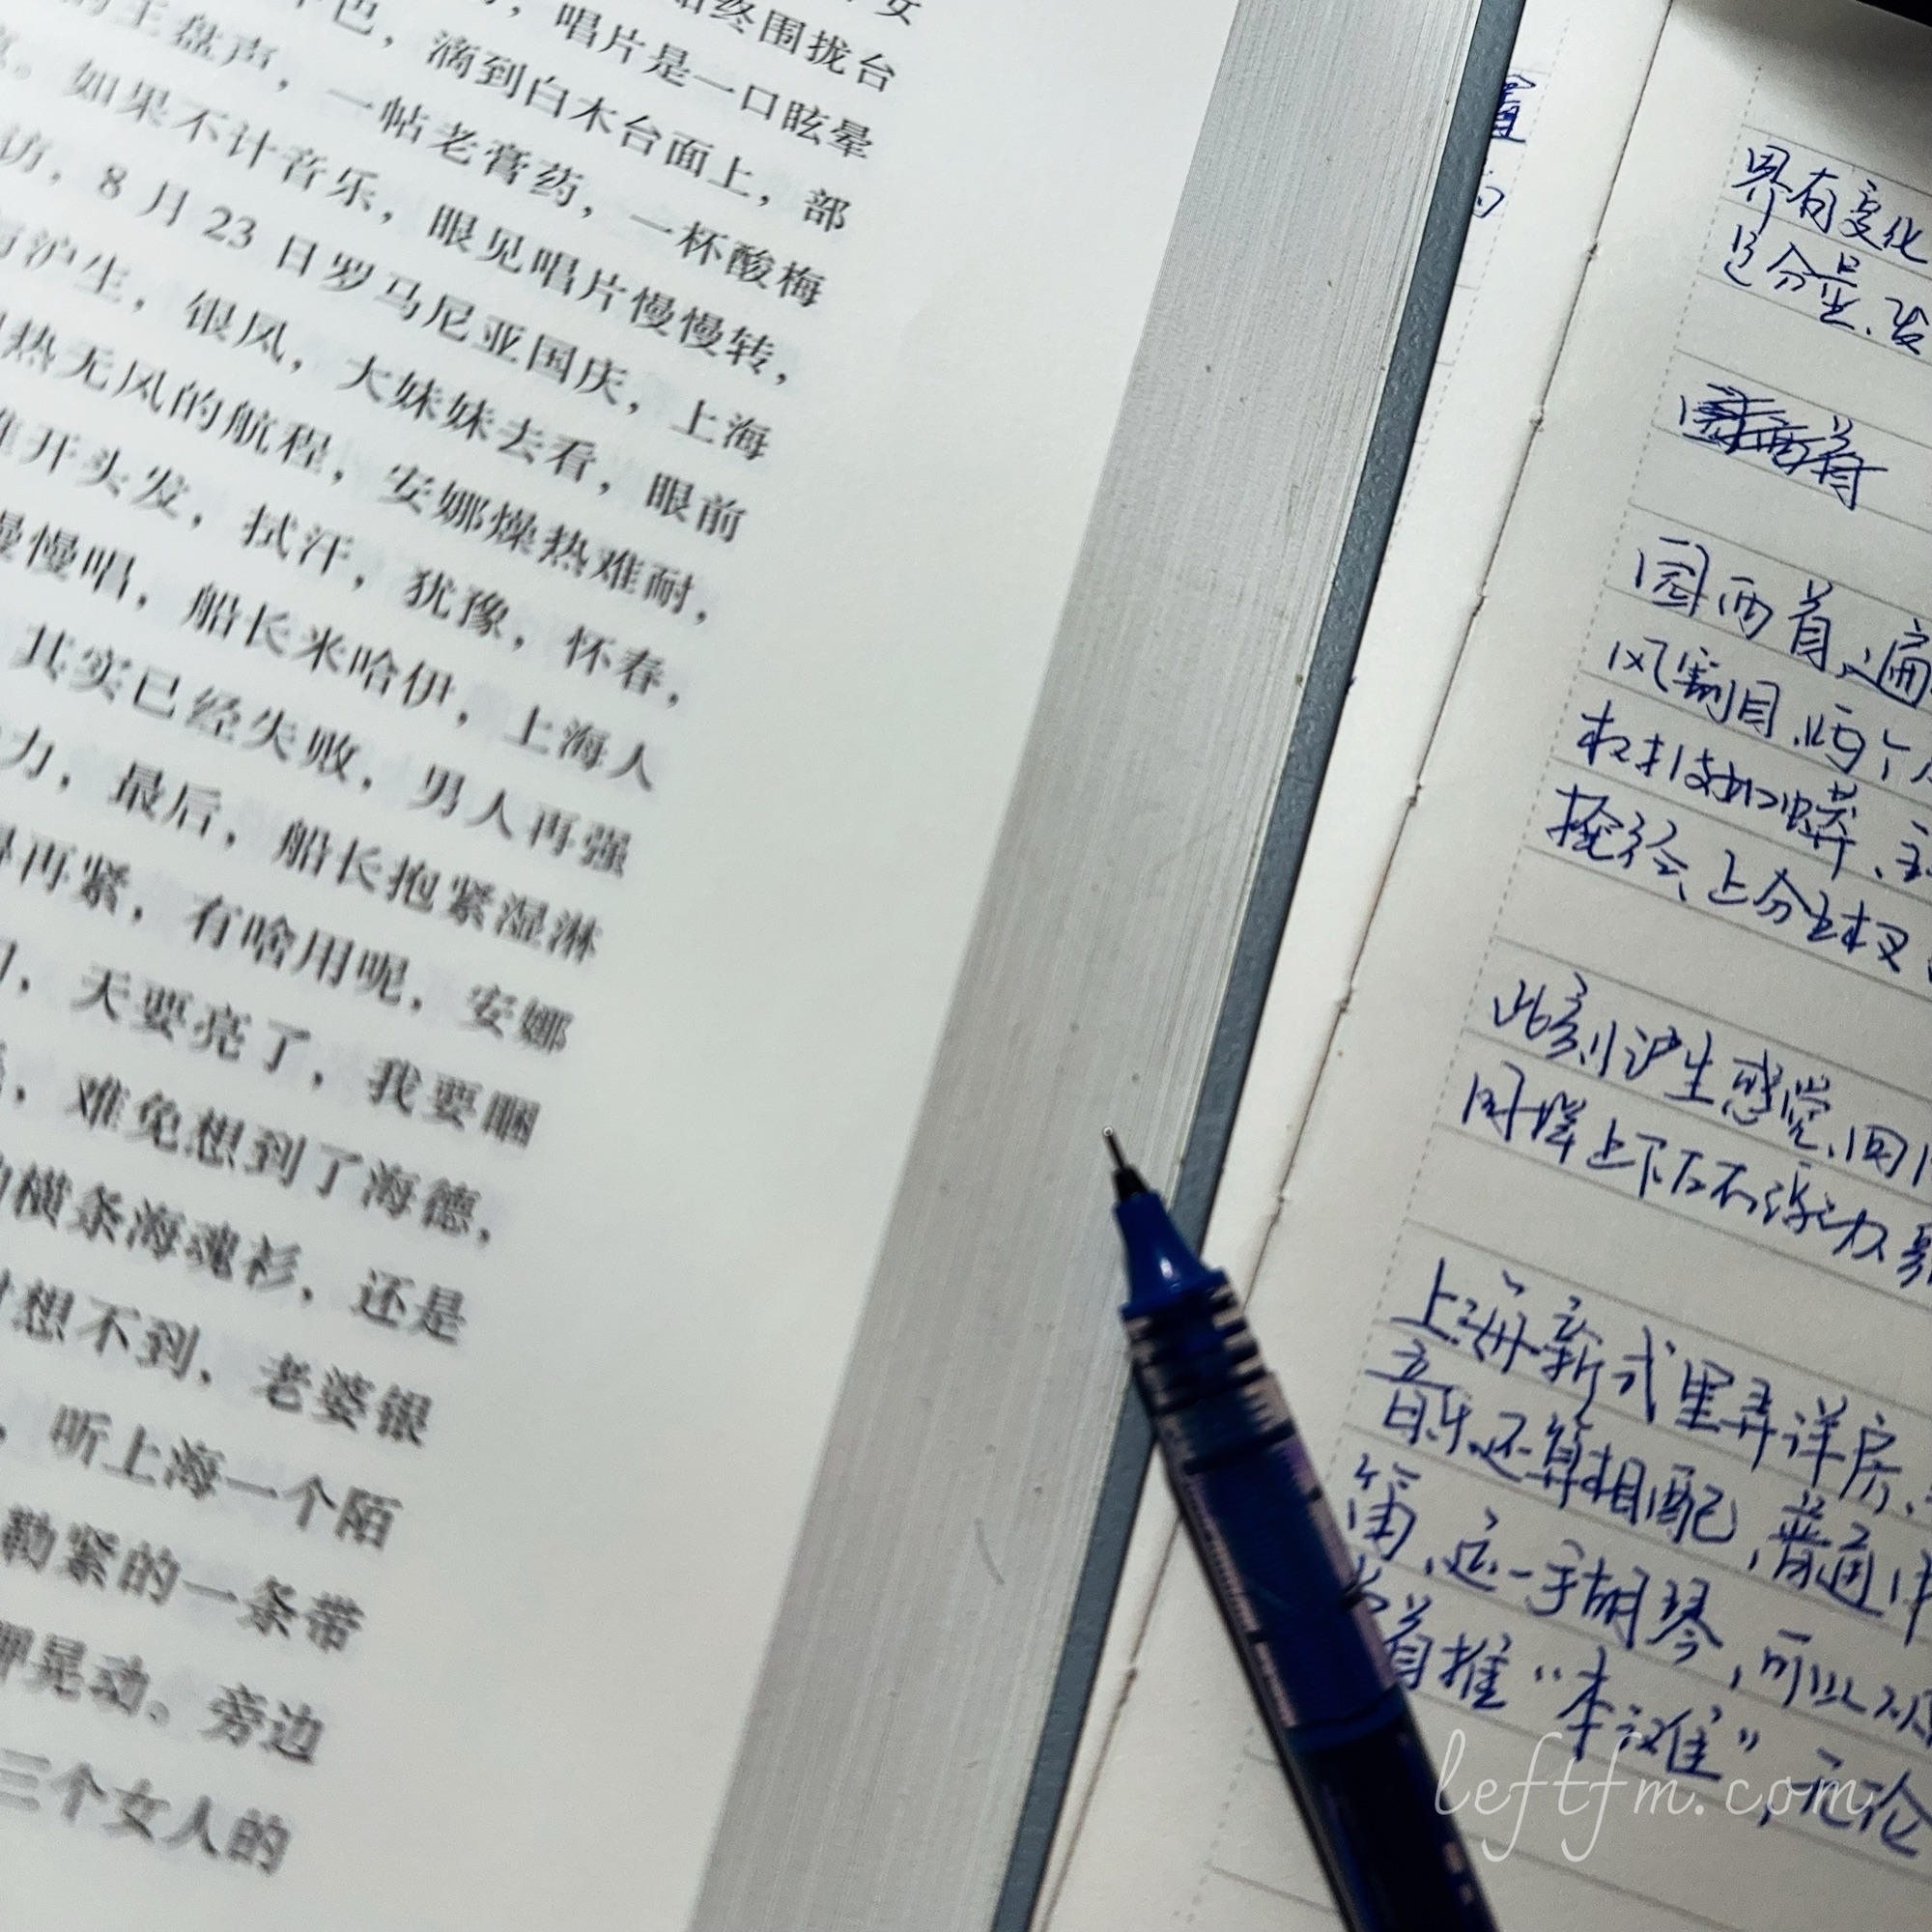 女
始终围拢台
，唱片是一口眩晕
色，滴到白木台面上，部
的王盘声，一帖老膏药，一杯酸梅
。如果不计音乐，眼见唱片慢慢转，
访，8月23日罗马尼亚国庆，上海
与沪生，银凤，大妹妹去看，眼前
热无风的航程，安娜燥热难耐，
开头发，拭汗，犹豫，怀春，
慢慢唱，船长米哈伊，上海人
其实已经失败，男人再强
力，最后，船长抱紧湿淋
得再紧，有啥用呢，安娜
，天要亮了，我要睏
，难免想到了海德，
的横条海魂衫，还是
想不到，老婆银
，听上海一个陌
勒紧的一条带
晃动。旁边
三个女人的
界有变化
分量，
园西首，遍
风割目，两个
枝如蟒，
上分主杈
此刻沪生感觉，
同样上下左右浮动
上海新式里弄洋房，
音乐还算相配，普通
笛，这一手胡琴，可以
首推“本滩”，无论
leftfm.com